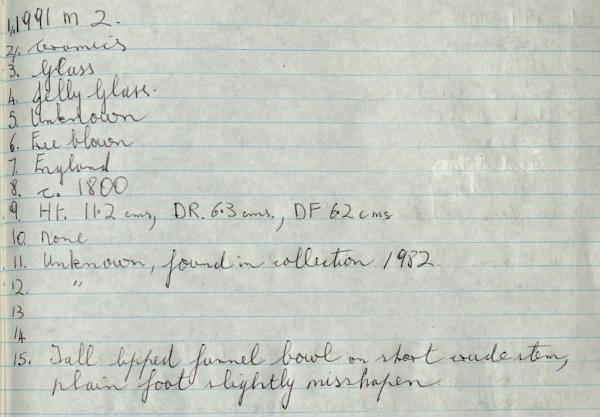 1. 1991 M 2.
2. Ceramics
3. Glass
4. Jelly Glass.
5. Unknown
6. Free blown
7. England
8. c. 1800
9. Ht. 11.2 cms, DR. 6.3 cms., DF 6.2 cms
10. None
11. Unknown, found in collection 1982.
12. "
13
14
15. Tall lipped funnel bowl on short crude stem,
plain foot slightly misshapen